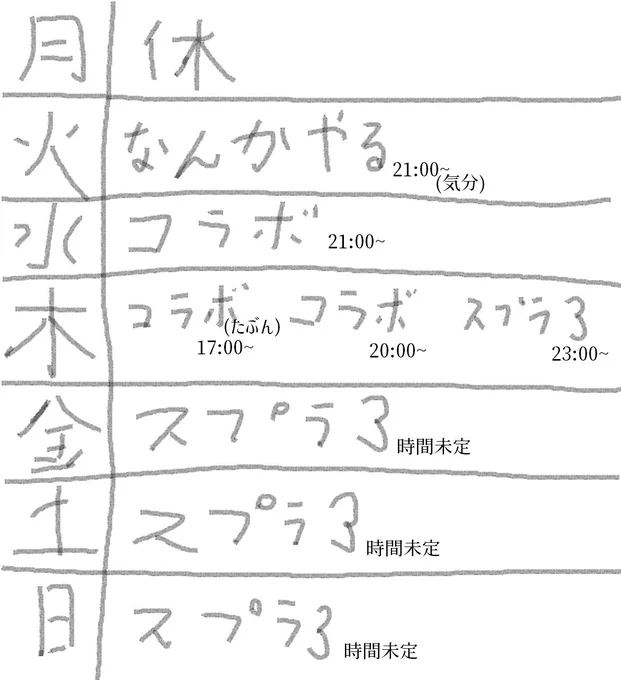 月 休
火 なんかやる 21:00~
(気分)
水 コラボ 21:00~
木 コラボ コラボ スプラ3
(たぶん)
17:00~ 20:00~ 23:00~
金 スプラ3 時間未定
土 スプラ3 時間未定
日 スプラ3 時間未定